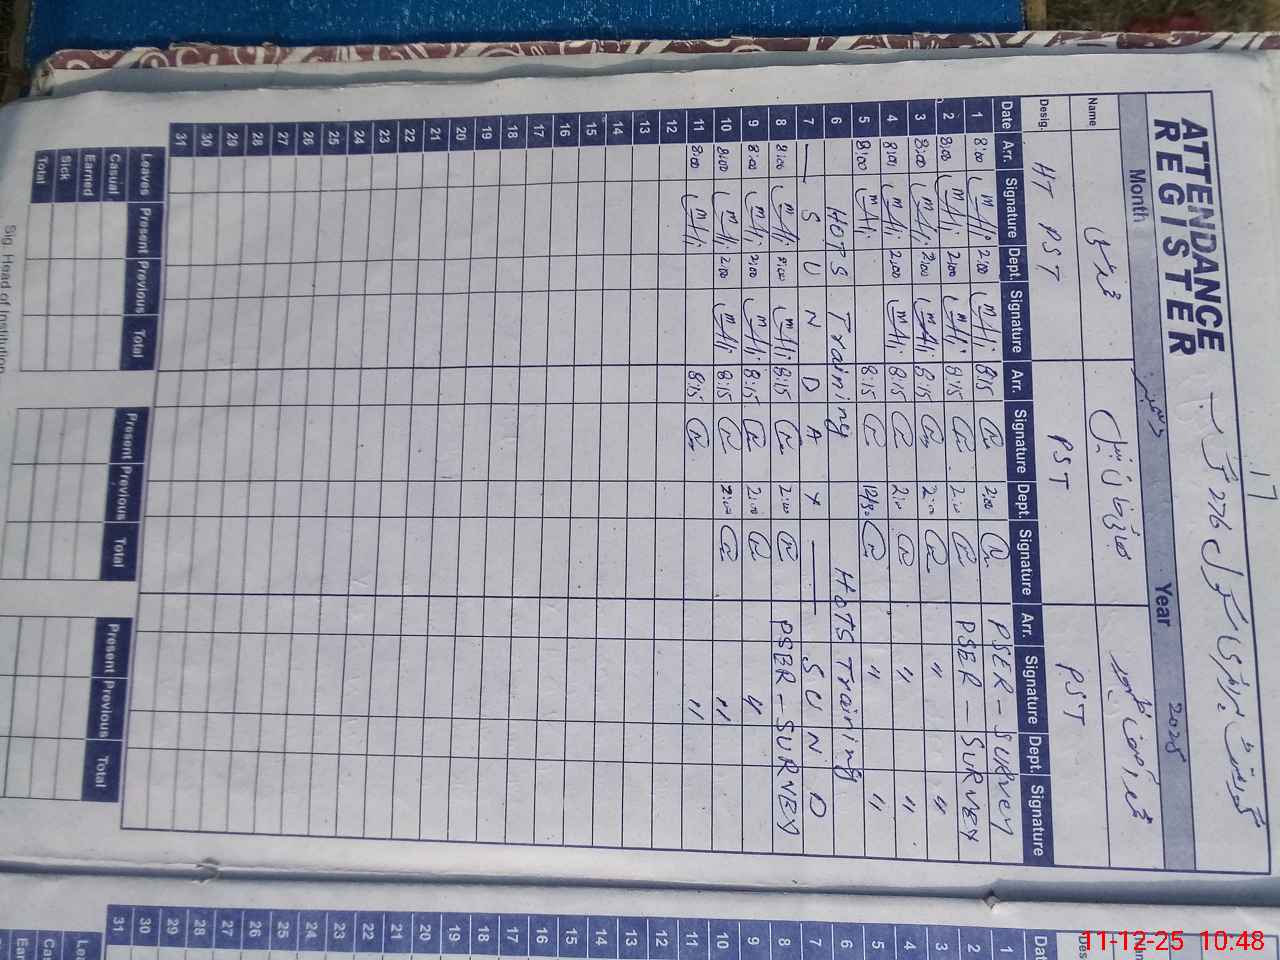 17
ATTENDANCE REGISTER
گورنمنٹ پرائمری سکول 276 گ ب
Month دسمبر Year 2025
Name
Desig. HT PST PST PST
Date Arr. Signature Dept. Signature Arr. Signature Dept. Signature Arr. Signature Dept. Signature
1 8:00 M Ali 2:00 M Ali 8:15 2:00 PSER - SURVEY
2 8:00 M Ali 2:00 M Ali 8:15 2:00 PSER - SURVEY
3 8:00 M Ali 2:00 M Ali 8:15 2:00 " "
4 8:00 M Ali 2:00 M Ali 8:15 2:00 " "
5 8:00 M Ali 8:15 12/30 " "
6 HOTS Training HOTS Training
7 — S U N D A Y — S U N D
8 8:00 M Ali 2:00 M Ali 8:15 2:00 PSER - SURVEY
9 8:00 M Ali 2:00 M Ali 8:15 2:00 "
10 8:00 M Ali 2:00 M Ali 8:15 2:00 "
11 8:00 M Ali 8:15 "
12
13
14
15
16
17
18
19
20
21
22
23
24
25
26
27
28
29
30
31
Leaves Present Previous Total Present Previous Total Present Previous Total
Casual
Earned
Sick
Total
Sig. Head of Institution
Dat
1
2
3
4
5
6
7
8
9
10
11
12
13
14
15
16
17
18
19
20
21
22
23
24
25
26
27
28
29
30
31
Le
Ca
Ear
11-12-25 10:48